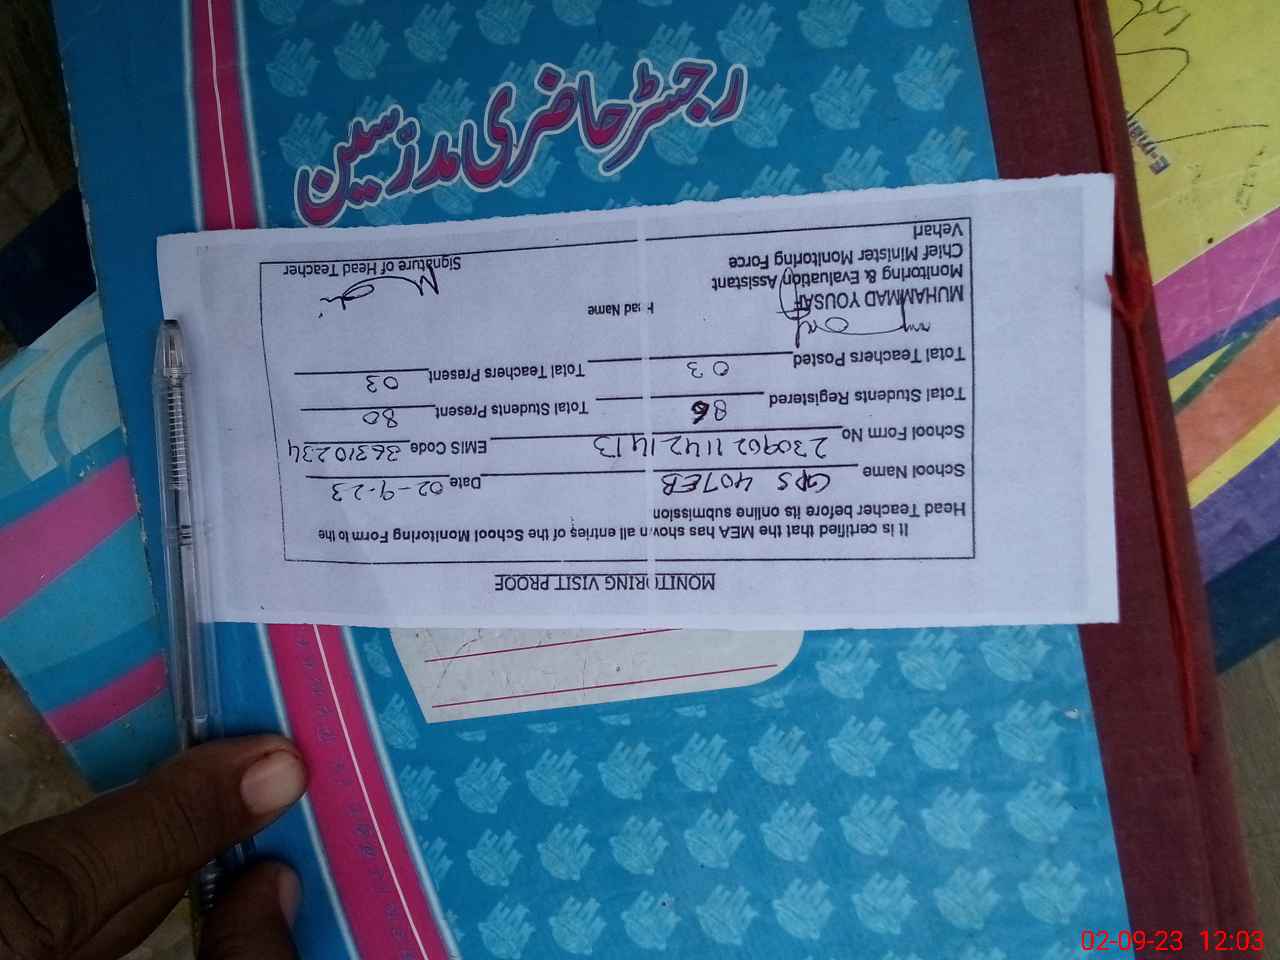 رجسٹر حاضری مدرّسین
E-mail
MONITORING VISIT PROOF
It is certified that the MEA has shown all entries of the School Monitoring Form to the
Head Teacher before its online submission
School Name GPS 407EB Date 02-9-23
School Form No 2309021142 1413 EMIS Code 36310234
Total Students Registered 86 Total Students Present 80
Total Teachers Posted 03 Total Teachers Present 03
MUHAMMAD YOUSAF Head Name
Monitoring & Evaluation Assistant
Chief Minister Monitoring Force Signature of Head Teacher
Vehari
02-09-23 12:03